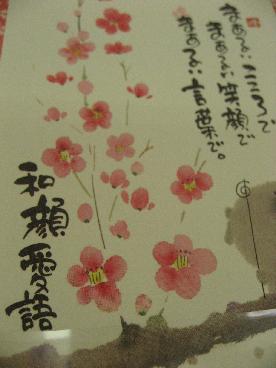 まあるいこころで
まあるい笑顔で
まあるい言葉で。
和顔愛語